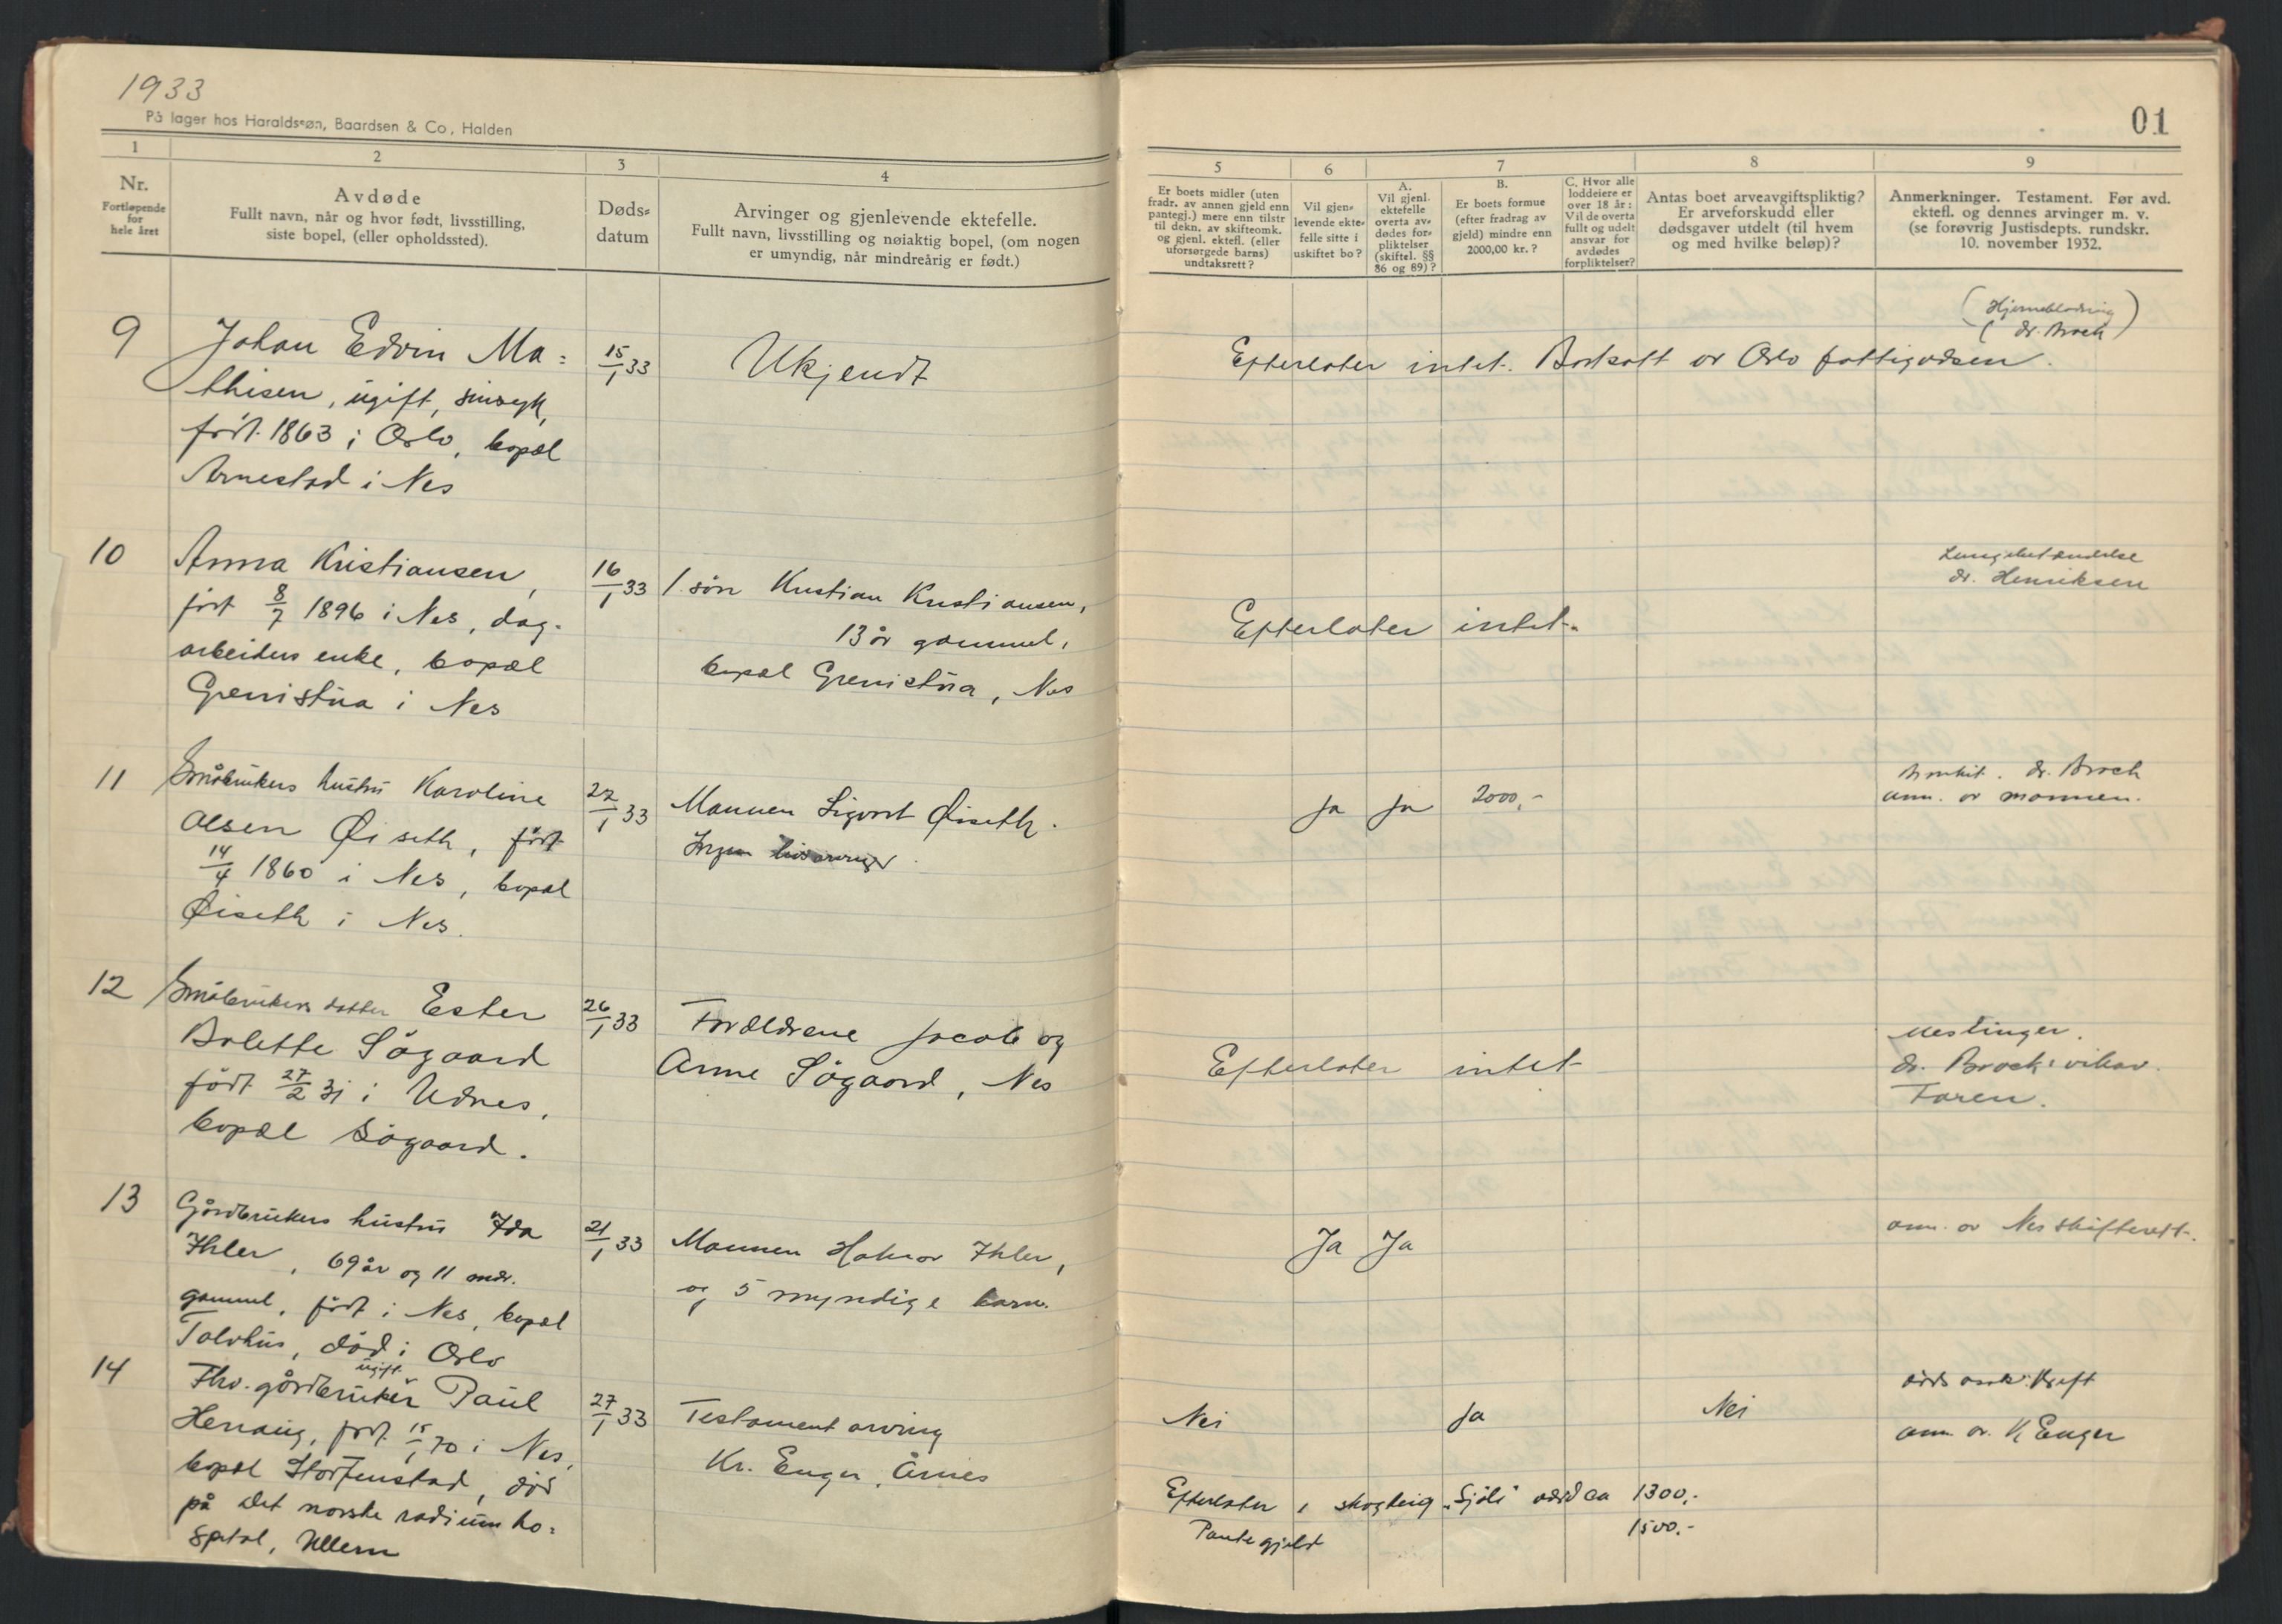 1933
På lager hos Haraldssøn, Baardsen & Co, Halden
1
2
3
4
Nr.
Fortløpende
for
hele året
Avdøde
Fullt navn, når og hvor født, livsstilling,
siste bopel, (eller opholdssted).
Døds-
datum
Arvinger og gjenlevende ektefelle.
Fullt navn, livsstilling og nøiaktig bopel, (om nogen
er umyndig, når mindreårig er født.)
01
5
6
7
8
9
Er boets midler (uten
fradr. av annen gjeld enn
pantegj.) mere enn tilstr
til dekn. av skifteomk.
og gjenl. ektefl. (eller
uforsørgede barns)
undtaksrett?
Vil gjen-
levende ekte-
felle sitte i
uskiftet bo?
A.
Vil gjenl.
ektefelle
overta av-
dødes for-
pliktelser
(skiftel. §§
86 og 89)?
B.
Er boets formue
(efter fradrag av
gjeld) mindre enn
2000,00 kr.?
C. Hvor alle
loddeiere er
over 18 år:
Vil de overta
fullt og udelt
ansvar for
avdødes
forpliktelser?
Antas boet arveavgiftspliktig?
Er arveforskudd eller
dødsgaver utdelt (til hvem
og med hvilke beløp)?
Anmerkninger. Testament. Før avd.
ektefl. og dennes arvinger m. v.
(se forøvrig Justisdepts. rundskr.
10. november 1932.
9
Johan Edvin Ma=
thisen, ugift, sinsyk,
født 1863 i Oslo, bopæl
Arnestad i Nes
15/1 33
Ukjendt
Efterlater intet. Bortsatt av Oslo fattigvæsen.
(Hjerneblødning)
(dr. Broch)
10
Anna Kristiansen,
født 8/7 1896 i Nes, dag-
arbeiders enke, bopæl
Grenistua i Nes
16/1 33
1 søn Kristian Kristiansen,
13 år gammel,
bopæl Grenistua, Nes
Efterlater intet.
Lungebetændelse
dr. Henriksen
11
Småbrukers hustru Karoline
Olsen Øiseth, født
14/4 1860 i Nes, bopæl
Øiseth i Nes.
22/1 33
Mannen Sigvart Øiseth.
Ingen livsarvinger.
ja ja 2000,-
Bronkit. dr. Broch
anm. av mannen.
12
Småbrukers datter Ester
Bolette Sögaard
født 27/2 31 i Udnes,
bopæl Sögaard.
26/1 33
Forældrene Jacob og
Anne Sögaard, Nes
Efterlater intet
Meslinger.
dr. Brochs vikar.
Faren.
13
Gårdbrukers hustru Ida
Ihler, 69 år og 11 mdr.
gammel, født i Nes, bopæl
Tolvhus, död i Oslo
21/1 33
Mannen Halvor Ihler,
og 5 myndige barn.
Ja Ja
anm. av Nes skifterett.
14
Fhv. gårdbruker ugift Paul
Hernæs, født 15/1 70 i Nes,
bopæl Horgenstad, död
på Det norske radium ho=
spital, Ullern
27/1 33
Testamentarving
Kr. Enger, Årnes
Nei
ja
Nei
døds årsak: Kreft
anm. av. K Enger
Efterlater 1 skogteig „Sjöli" værd ca 1300,-
Pantegjeld 1500.-